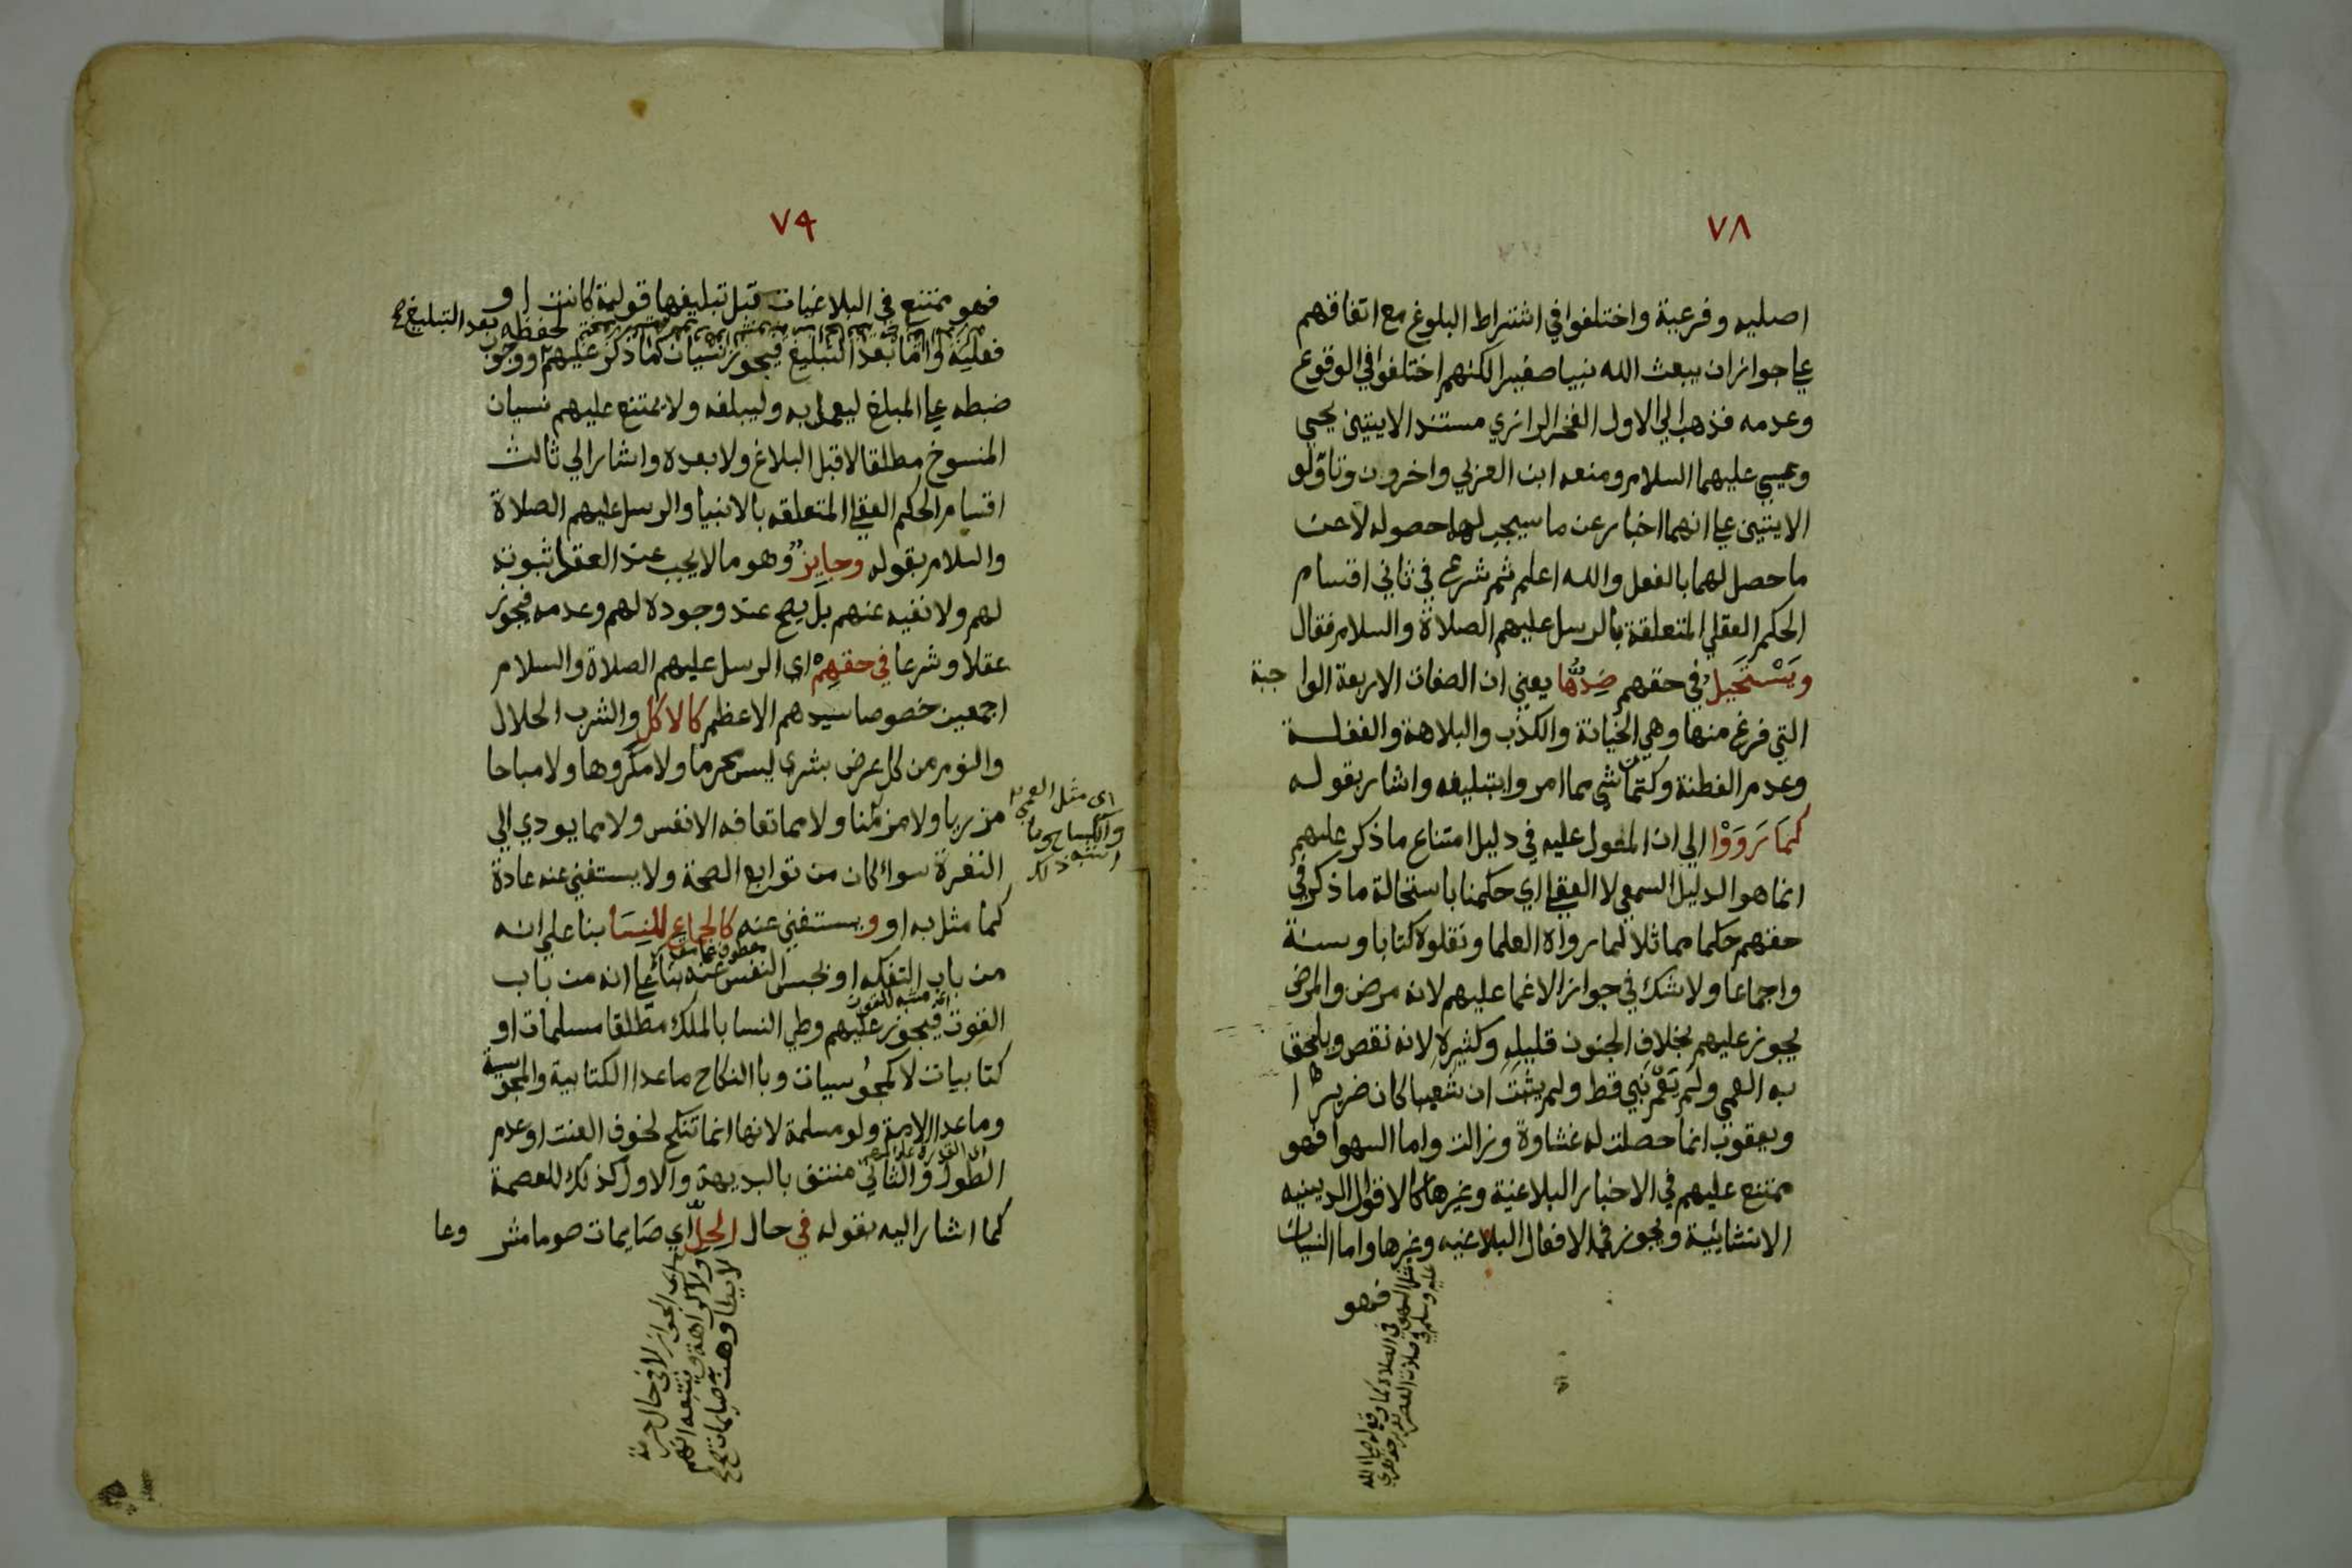 ٧٨
اصليه وفرعية واختلفوا في اشتراط البلوغ مع اتفاقهم
علي جواز ان يبعث الله نبيا صغيرا لكنهم اختلفوا في الوقوع
وعدمه فذهب الي الاول الفخر الرازي مستندا لايتين يحيي
وعيسي عليهما السلام ومنعه ابن العربي واخرون وتاولو
الايتين علي انهما اخبار عن ما سيجب لهما حصوله لا عن
ما حصل لهما بالفعل والله اعلم ثم شرع في ثاني اقسام
الحكم العقلي المتعلقة بالرسل عليهم الصلاة والسلام فقال
ويَسْتَحيلُ في حقهم ضِدُّها يعني ان الصفات الاربعة الوا جبة
التي فرغ منها وهي الخيانة والكذب والبلاهة والغفلــة
وعدم الفطنة وكتمان شي مما امروا بتبليغه واشار بقولــه
كمَا رَوَوْا الي ان المعول عليه في دليل امتناع ما ذكر عليهم
انما هو الدليل السمعي لا العقلي اي حكمنا باستحالة ما ذكر في
حقهم حكما مماثلا لما رواه العلما ونقلوه كتابا وسنة
واجماعا ولا شك في جواز الاغما عليهم لانه مرض والمرض
يجوز عليهم بخلاف الجنون قليله وكثيره لانه نقص ويلحق
به العمي ولم يَعْمَ نبي قط ولم يثبت ان شعيبا كان ضريرا
ويعقوب انما حصلت له غشاوة وزالت واما السهو فهو
ممتنع عليهم في الاخبار البلاغية وغيرها كالاقوال الدينيه
الانشائية ويجوز في الافعال البلاغيه وغيرها واما النسيان
فهو
مثل السهو في الصلاة كما وقع له صلي الله
عليه وسلم في صلات العصر
٧٩
فهو ممتنع في البلاغيات قبل تبليغها قولية كانت او
لحفظه بعد التبليغ
فعلية واما بعد التبليغ فيجوز نسيان ما ذكر عليهم ووجوب
ضبطه علي المبلغ ليعمل به وليبلغه ولا يمتنع عليهم نسيان
المنسوخ مطلقا لا قبل البلاغ ولا بعده واشار الي ثالث
اقسام الحكم العقلي المتعلقه بالانبيا والرسل عليهم الصلاة
والسلام بقوله وجايِزٌ وهو ما لا يجب عند العقل ثبوته
لهم ولا نفيه عنهم بل يصح عند وجوده لهم وعدمه فيجوز
عقلا وشرعا في حقهِمْ اي الرسل عليهم الصلاة والسلام
اجمعين خصوصا سيدهم الاعظم كالاكل والشرب الحلال
والنوم من كل عرض بشري ليس محرما ولا مكروها ولا مباحا
مزريا ولا مزمنا ولا مما تعافه الانفس ولا مما يودي الي
اي مثل العمي
اشبه ذلك
النفرة سواء كان من توابع الصحة ولا يستغني عنه عادة
كما مثل به او ويستغني عنه كالجماع للنِسَا بنا علي انه
من باب التفكه او لحبس النفس عنه بنا علي انه من باب
القوت فيجوز عليهم وطي النسا بالملك مطلقا مسلمات او
كتابيات لا كمجوسيات وبالنكاح ماعدا الكتابية والمجوسية
وماعدا الامة ولو مسلمة لانها انما تنكح لخوف العنت او عدم
الطول والثاني منتف بالبديهة والاول كذلك للعصمة
كما اشار اليه بقوله في حال الحِلّ اي صَايمات صوما مشر وعا
اي الجواز لا في حال حرمة
ولا كراهة